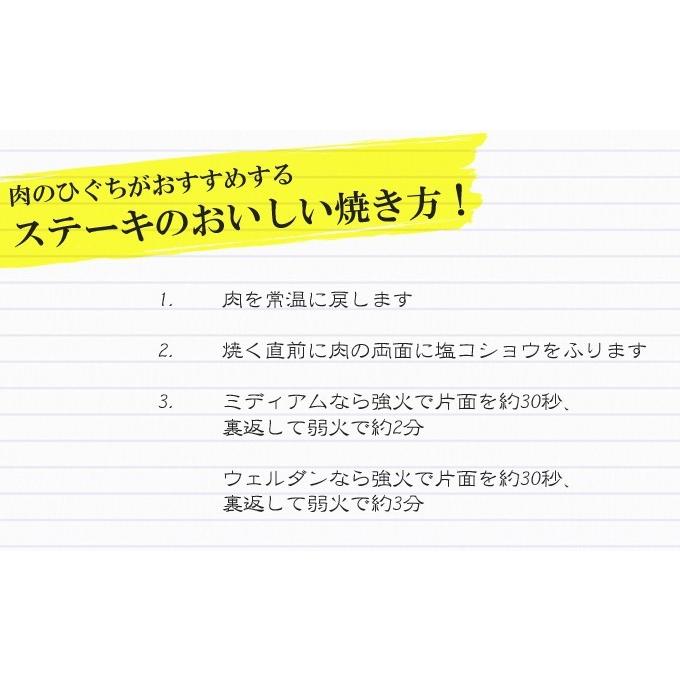 肉のひぐちがおすすめする
ステーキのおいしい焼き方！
1. 肉を常温に戻します
2. 焼く直前に肉の両面に塩コショウをふります
3. ミディアムなら強火で片面を約30秒、
裏返して弱火で約2分
ウェルダンなら強火で片面を約30秒、
裏返して弱火で約3分